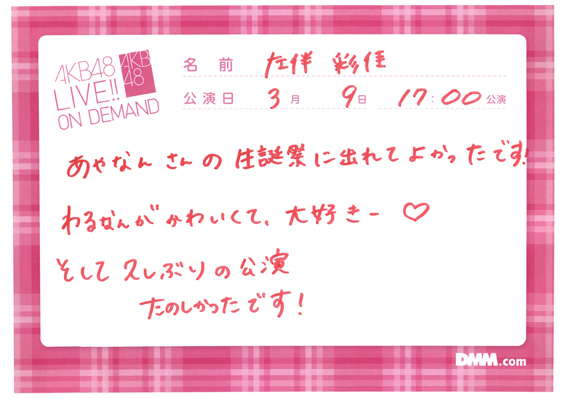 AKB48
LIVE!!
ON DEMAND
AKB
48
名前 左伴 彩佳
公演日 3月 9日 17:00公演
あやなんさんの生誕祭に出れてよかったです!
わるなんがかわいくて、大好きー♡
そして久しぶりの公演
たのしかったです!
DMM.com